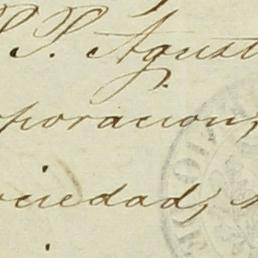 P. P. Agust
rporacion,
ociedad, s